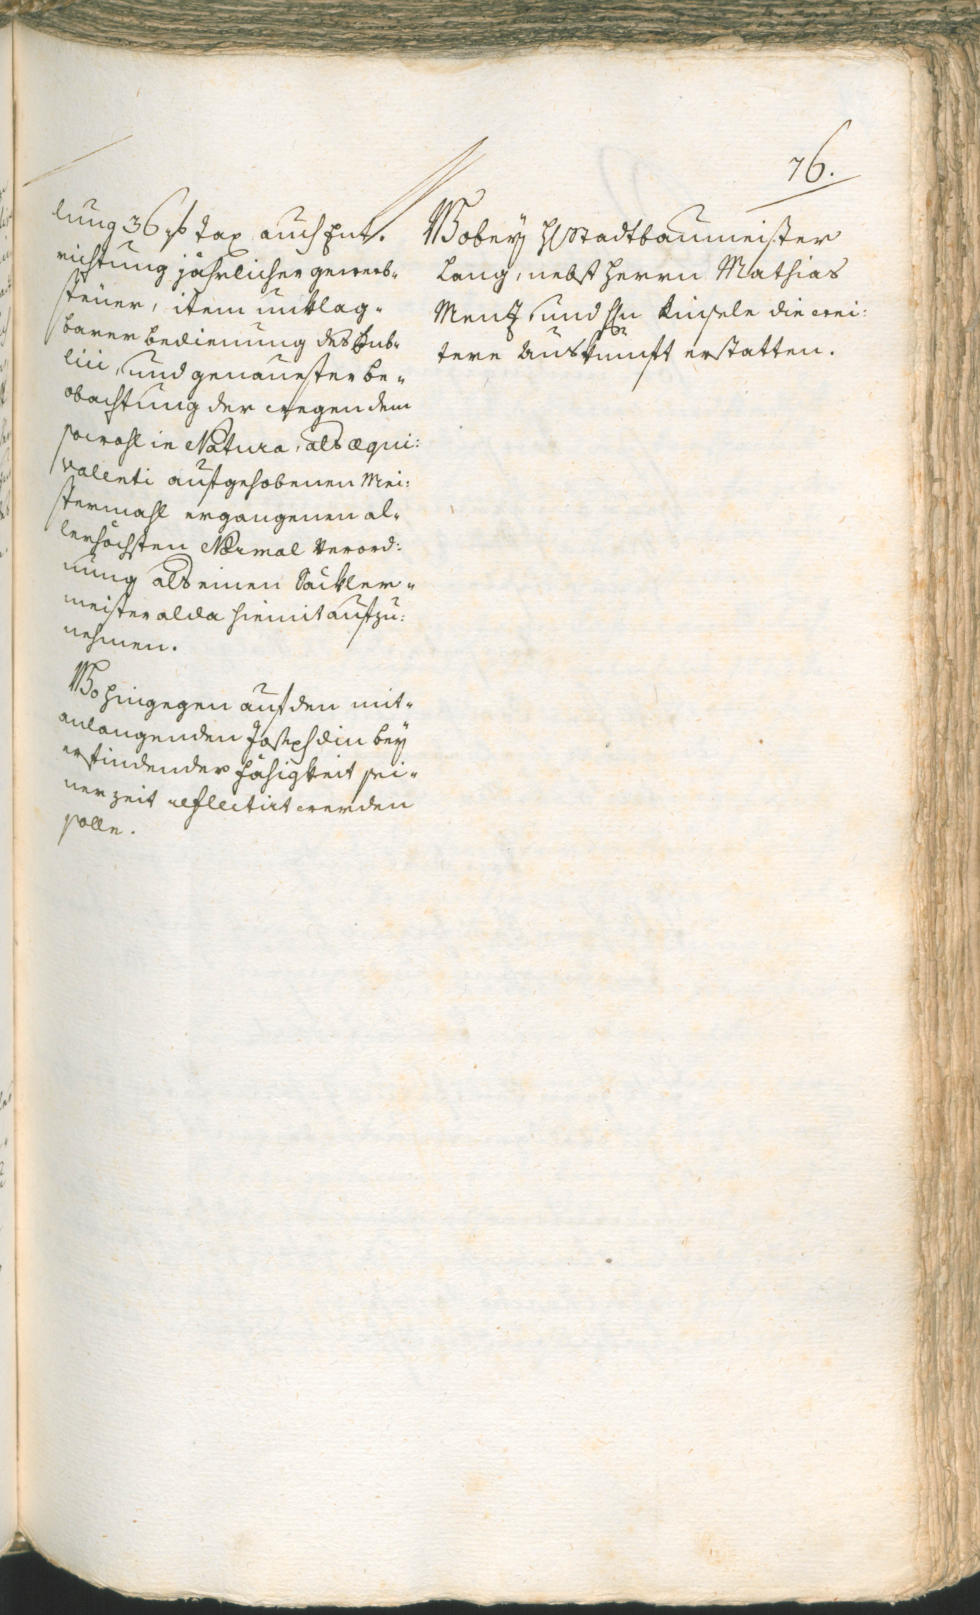 76.
lung 36 xr Tax, auch Ent-
richtung jährlicher gewerb-
steüer, item unklag-
barer bedienung des Pub-
lici, und genauester be-
obachtung der wegen dem
sowohl in Natura, als æqui:
valenti aufgehobenen Mei:
stermahl ergangenen al-
lerhöchsten Normal Verord:
nung als einen Säckler-
meister alda hiemit aufzu:
nehmen.
Wohingegen auf den mit-
anlangenden Joseph din bey
erfindender fähigkeit sei-
ner zeit reflectirt werden
solle.
Wobey H Stadtbaumeister
Lang, nebst Herrn Mathias
Menz, und Hn Kinsele die wei:
tere Auskunft erstatten.